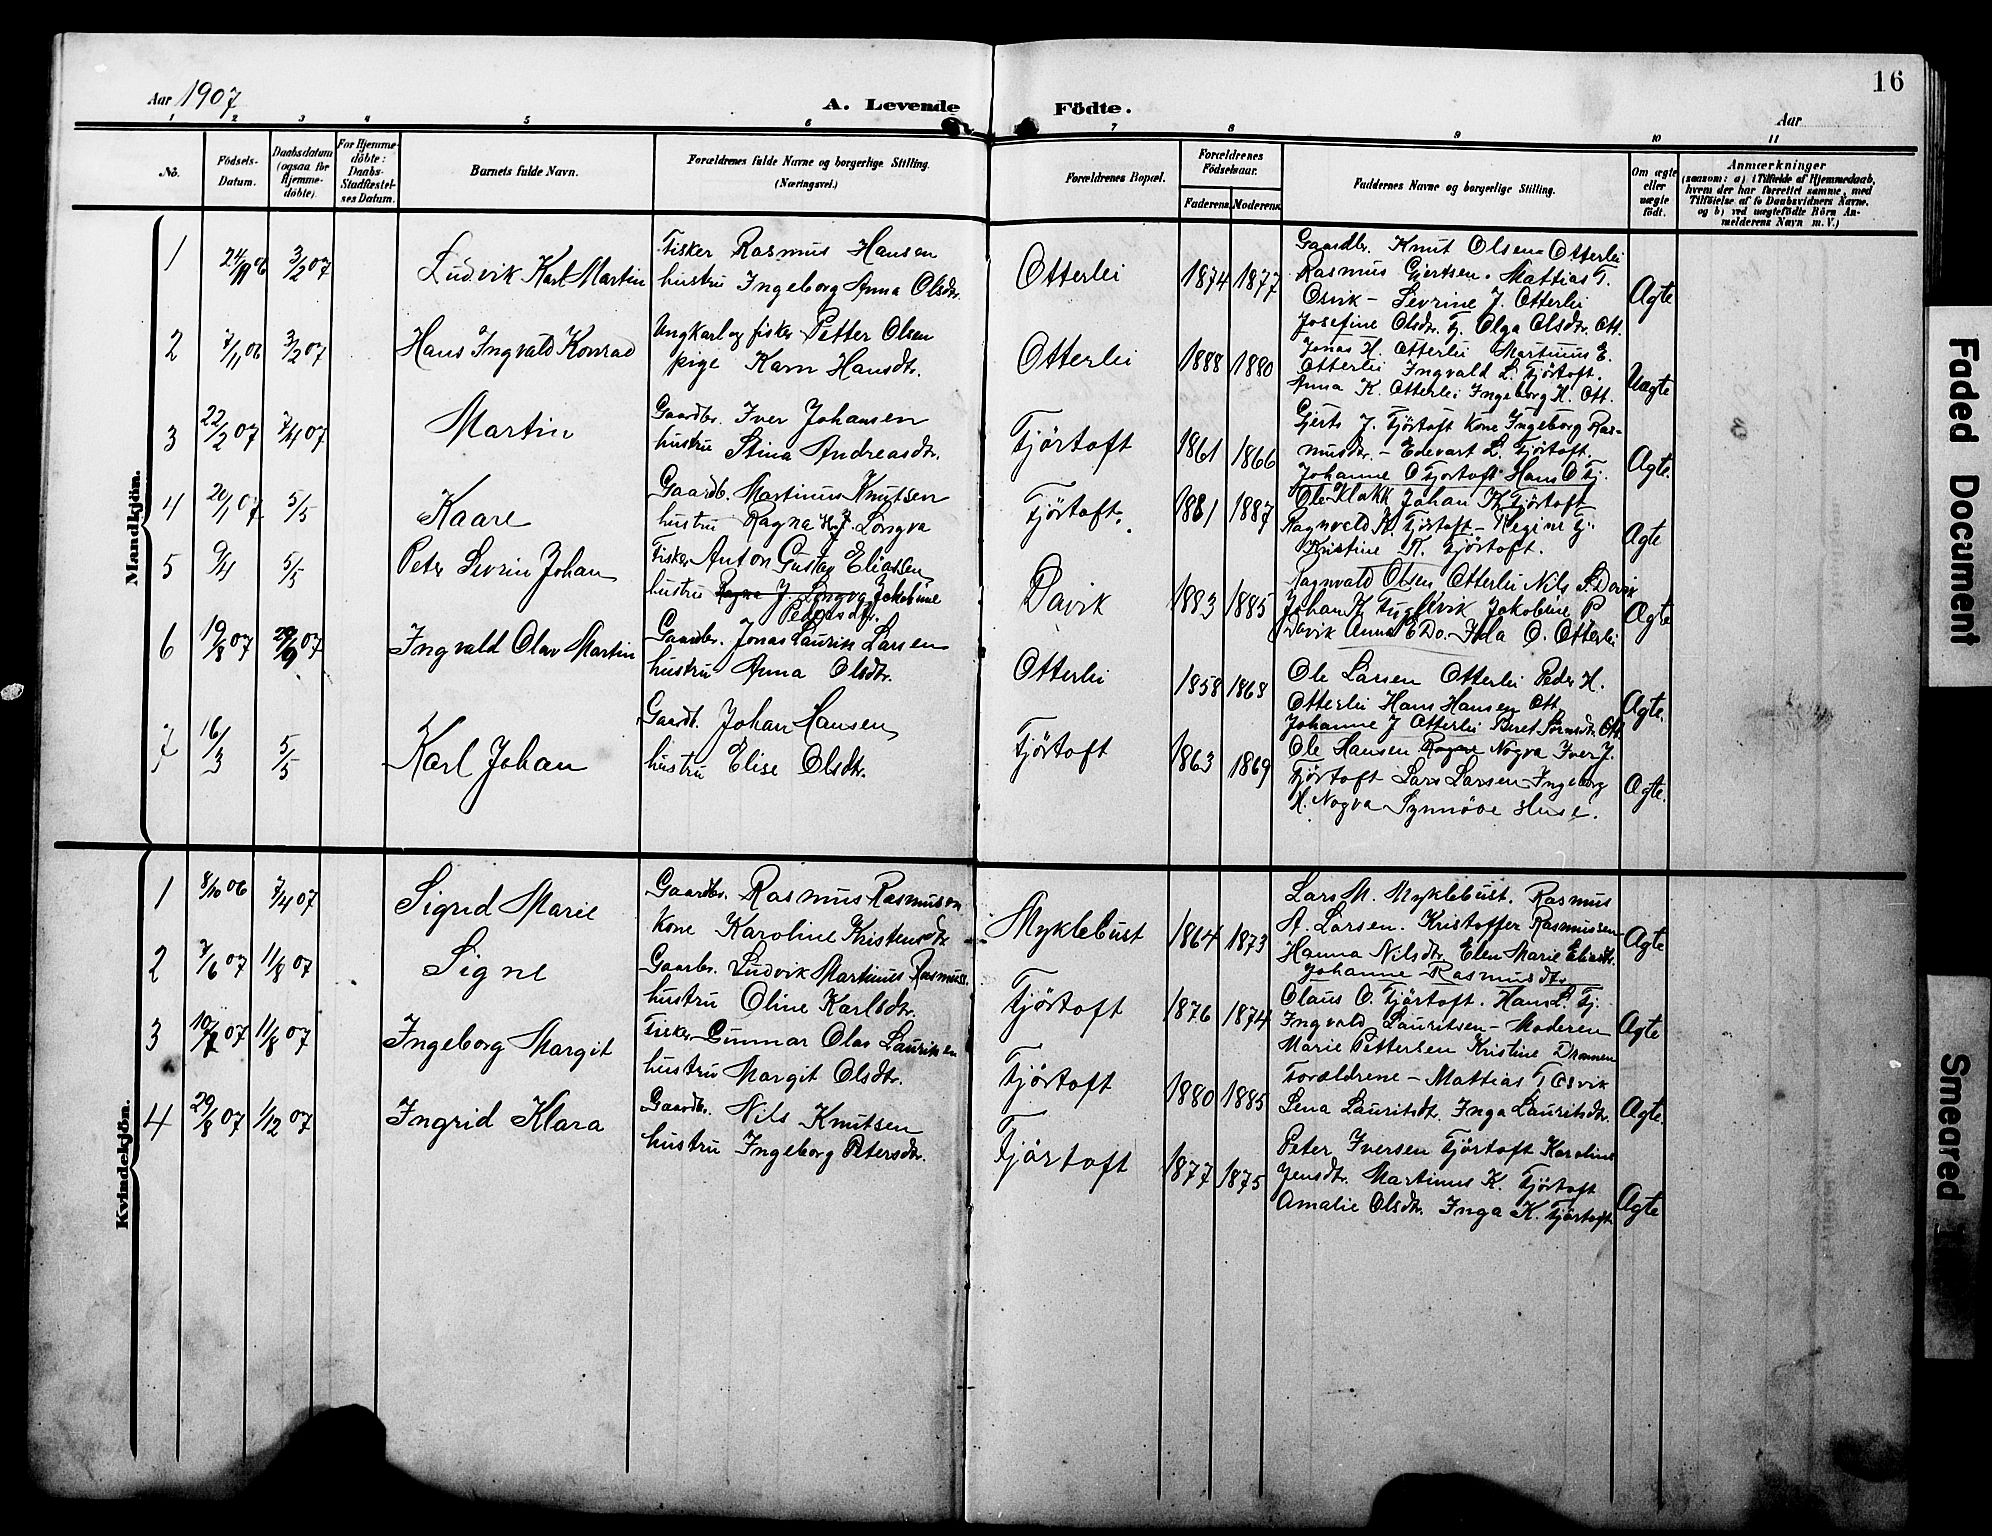 16
Aar 1907
A. Levende Födte.
Aar
1 2 3 4 5 6 7 8 9 10 11
No.
Födsels-Datum.
Daabsdatum (ogsaa for Hjemme-döbte).
For Hjemme-döbte: Daabs-Stadfæstel-ses Datum.
Barnets fulde Navn.
Forældrenes fulde Navne og borgerlige Stilling. (Næringsvei.)
Forældrenes Bopæl.
Forældrenes Födselsaar.
Faderens. Moderens.
Faddernes Navne og borgerlige Stilling.
Om ægte eller uægte födt.
Anmærkninger
(saasom: a) i Tilfælde af Hjemmedaab,
hvem der har forrettet samme, med
Tilföielse af to Daabsvidners Navne.
og b) ved uægtefödte Börn An-
melderens Navn m. V.)
Mandkjön.
1 24/11 06 3/2 07 Ludvik Karl Martin
Fisker Rasmus Hansen
hustru Ingeborg Anna Olsdtr.
Otterlei 1874 1877
Gaardbr. Knut Olsen Otterlei
Rasmus Gjertsen. Mattias T.
Osvik - Sevrine J. Otterlei
Josefine Olsdtr. Fj. Olga Olsdtr. Ott.
Ægte
2 7/11 06 3/2 07 Hans Ingvald Konrad
Ungkarl og fisker Petter Olsen
pige Karn Hansdtr.
Otterlei 1888 1880
Jonas H. Otterlei Martinus E.
Otterlei Ingvald L. Fjörtoft.
Anna K. Otterlei Ingeborg H. Ott.
Uægte
3 22/2 07 7/4 07 Martin
Gaardbr. Iver Johansen
hustru Stina Andreasdtr.
Fjörtoft 1861 1866
Gjerts J. Fjörtoft Kone Ingeborg Ras-
musdtr. - Edevart L. Fjörtoft.
Johanne O Fjortoft Hans O Fj.
Ægte.
4 20/1 07 5/5 Kaare
Gaardb. Martinus Knutsen
hustru Ragna H. J. Longva
Fjörtoft. 1881 1887
Ole Klokk Johan K Fjörtoft
Ragnvald K. Fjörtoft - Regine Fj.
Kristine K. Fjörtoft.
Ægte
5 9/4 5/5 Peter Sevrin Johan
Fisker Anton Gustav Eliassen
hustru Ragna J. Longva Jakobine
Pedersdtr.
Davik 1883 1885
Ragnvald Olsen Otterlei Nils S. Davik
Johan K Fuglevik Jakobine P
Davik Anna E Do. Ida O. Otterlei
Ægte
6 19/8 07 29/9 07 Ingvald Olav Martin
Gaardbr. Jonas Laurits Larsen
hustru Anna Olsdtr.
Otterlei 1858 1868
Ole Larsen Otterlei Peder H.
Otterlei Hans Hansen Ott.
Johanne J Otterlei Beret Sörnsdtr. Ott.
Ægte.
7 16/3 5/5 Karl Johan
Gaardb. Johan Hansen
hustru Elise Olsdtr.
Fjörtoft 1863 1869
Ole Hansen Ragne Nogva Iver J.
Fjörtoft Lars Larsen Ingeborg
H. Nogva Synnöve Huse.
Ægte.
Kvindekjön.
1 8/10 06 7/4 07 Sigrid Marie
Gaardbr. Rasmus Rasmusen
Kone Karoline Kristensdtr
Myklebust 1864 1873
Lars M. Myklebust. Rasmus
A. Larsen. Kristoffer Rasmussen
Hanna Nilsdtr. Elen Marie Eliasdtr.
Johanne Rasmusdtr.
Ægte
2 7/6 07 11/8 07 Signe
Gaarbr. Ludvik Martinus Rasmuss.
hustru Oline Karlsdtr.
Fjörtoft 1876 1874
Olaus O. Fjörtoft. Hans L. Fj.
Ingvald Lauritsen - Moderen
Marie Pettersen Kristine Drönnen
Ægte
3 10/7 07 11/8 07 Ingeborg Margit
Fisker Gunnar Olas Lauritsen
hustru Margit Olsdtr.
Fjörtoft 1880 1885
Forældrene - Mattias T Osvik
Lena Lauritsdtr. Inga Lauritsdtr.
Ægte.
4 29/8 07 1/12 07 Ingrid Klara
Gaardbr. Nils Knutsen
hustru Ingeborg Petersdtr.
Fjörtoft 1877 1875
Peter Iversen Fjörtoft Karoline
Jensdtr. Martinus K. Fjörtoft
Amalie Olsdtr. Inga K. Fjörtoft.
Ægte
Faded Document
Smeared